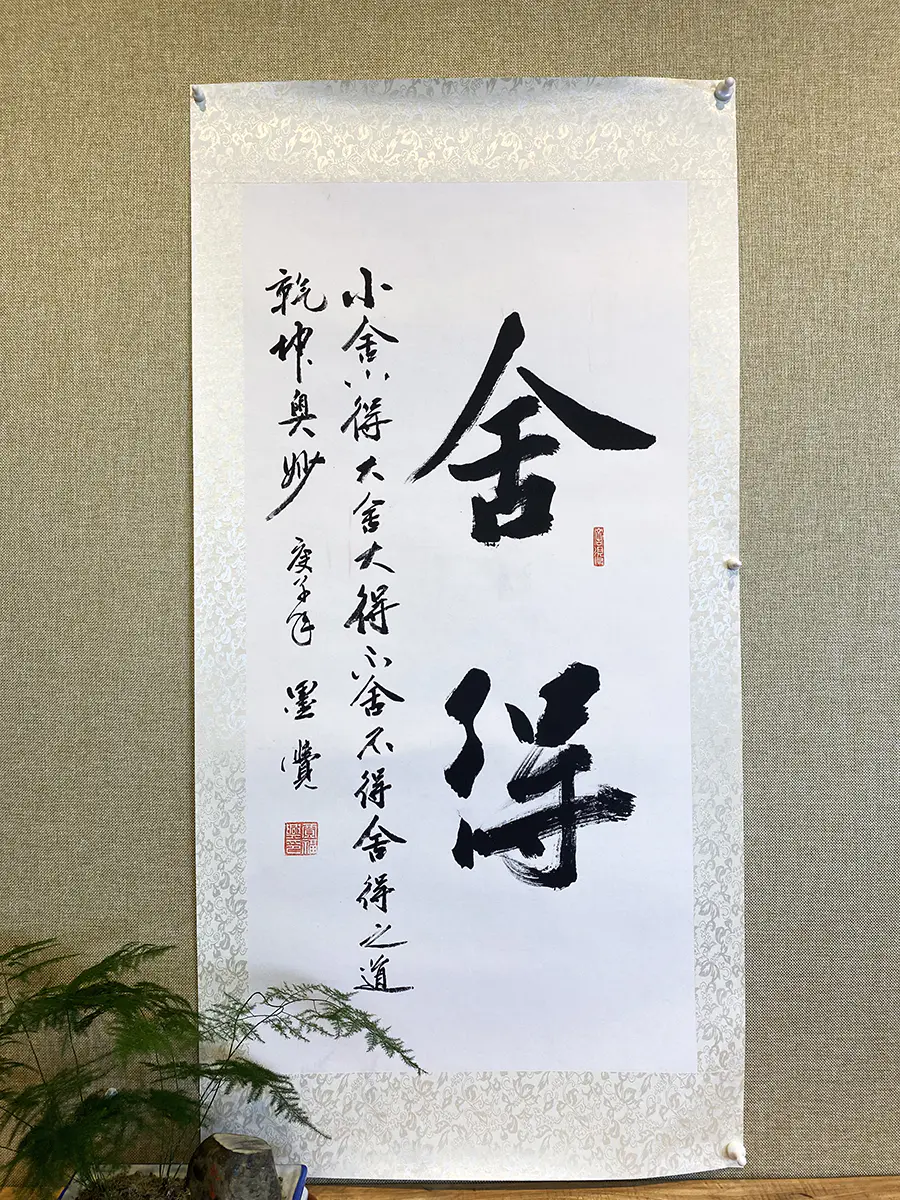 舍得
小舍小得大舍大得不舍不得舍得之道
乾坤奥妙 庚子年 墨
舍得